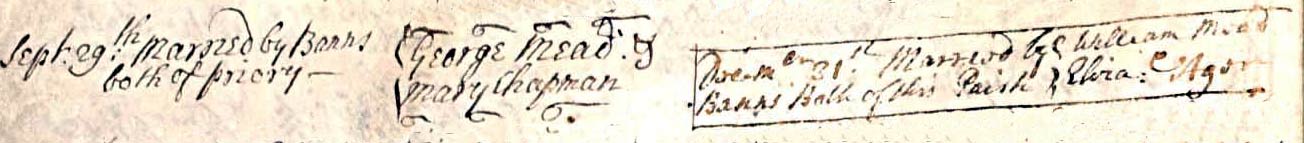 Sept: 29th Married by Banns
both of priory
George Mead &
Mary Chapman
Decemer 31th Married by
Banns Both of this Parish
William Mead